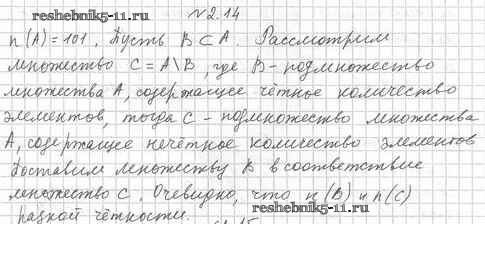 reshebnik5-11.ru
№2.14
n(A)=101. Пусть B⊂A. Рассмотрим
множество C=A\B, где B - подмножество
множества A, содержащее чётное количество
элементов, тогда C - подмножество множества
A, содержащее нечётное количество элементов
Поставим множеству B в соответствие
множество C. Очевидно, что n(B) и n(C)
разной чётности.
reshebnik5-11.ru